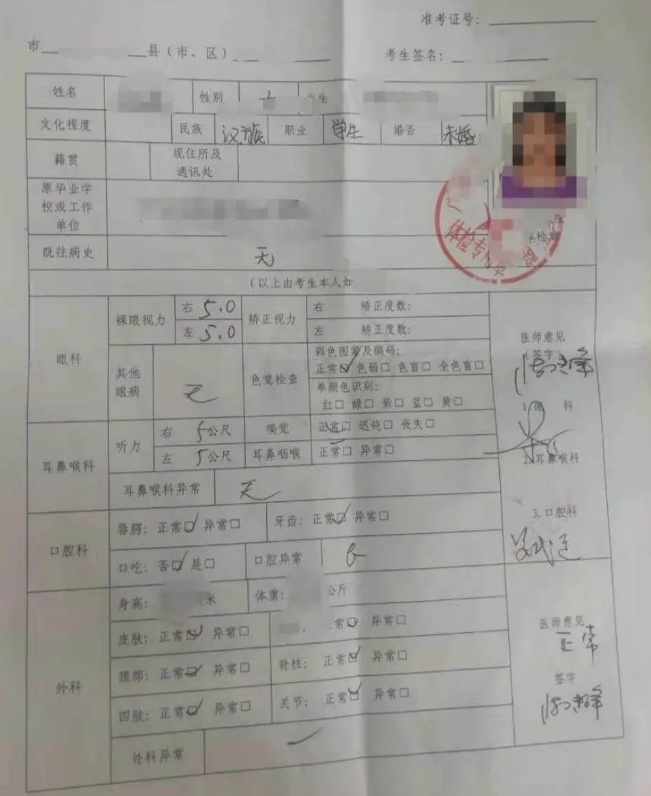 准考证号：
市 县（市、区） 考生签名：
姓名 性别 出生
文化程度 民族 汉族 职业 学生 婚否 未婚
籍贯 现住所及通讯处
原毕业学校或工作单位
既往病史 无
（以上由考生本人如
眼科 裸眼视力 右 5.0 矫正视力 右 矫正度数：
左 5.0 左 矫正度数：
医师意见
（签字
其他眼病 无 色觉检查 彩色图案及编码：
正常☑ 色弱□ 色盲□ 全色盲□
单颜色识别：
红□ 绿□ 紫□ 蓝□ 黄□
1. 眼 科
耳鼻喉科 听力 右 5公尺 嗅觉 正常□ 迟钝□ 丧失□
左 5公尺 耳鼻咽喉 正常□ 异常□
2. 耳鼻喉科
耳鼻喉科异常 无
口腔科 唇腭：正常☑ 异常□ 牙齿：正常☑ 异常□
3. 口腔科
口吃：否☑ 是□ 口腔异常
外科 身高： 米 体重： 公斤
医师意见
正常
皮肤：正常☑ 异常□ 常☑ 异常□
颈部：正常☑ 异常□ 脊柱：正常☑ 异常□
签字
四肢：正常☑ 异常□ 关节：正常☑ 异常□
外科异常
体检专